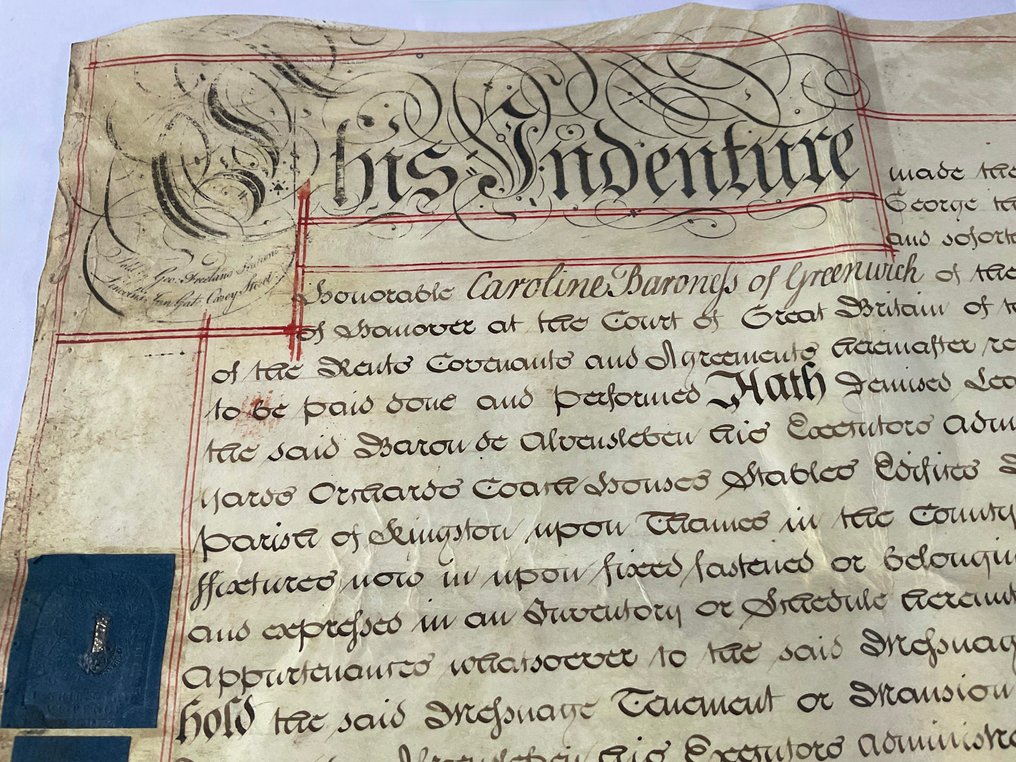 This Indenture made the
George the
and soforth
Sold by Geo: Freeland Stationer
Lincolns Inn Gate Carey Street
Honorable Caroline Baroneſs of Greenwich of the
of Hanover at the Court of Great Britain of
of the Rents Covenants and Agreements hereinafter
to be paid done and performed Hath Demised
the said Baron de Alvensleben his Executors
Yards Orchards Coach Houses Stables Edifices
parish of Kingston upon Thames in the County
ffixtures now in upon fixed fastened or belonging
and expressed in an Inventory or Schedule hereunto
Appurtenances whatsoever to the said Meſsuage
hold the said Meſsuage Tenement or Mansion
Alvensleben his Executors Administra